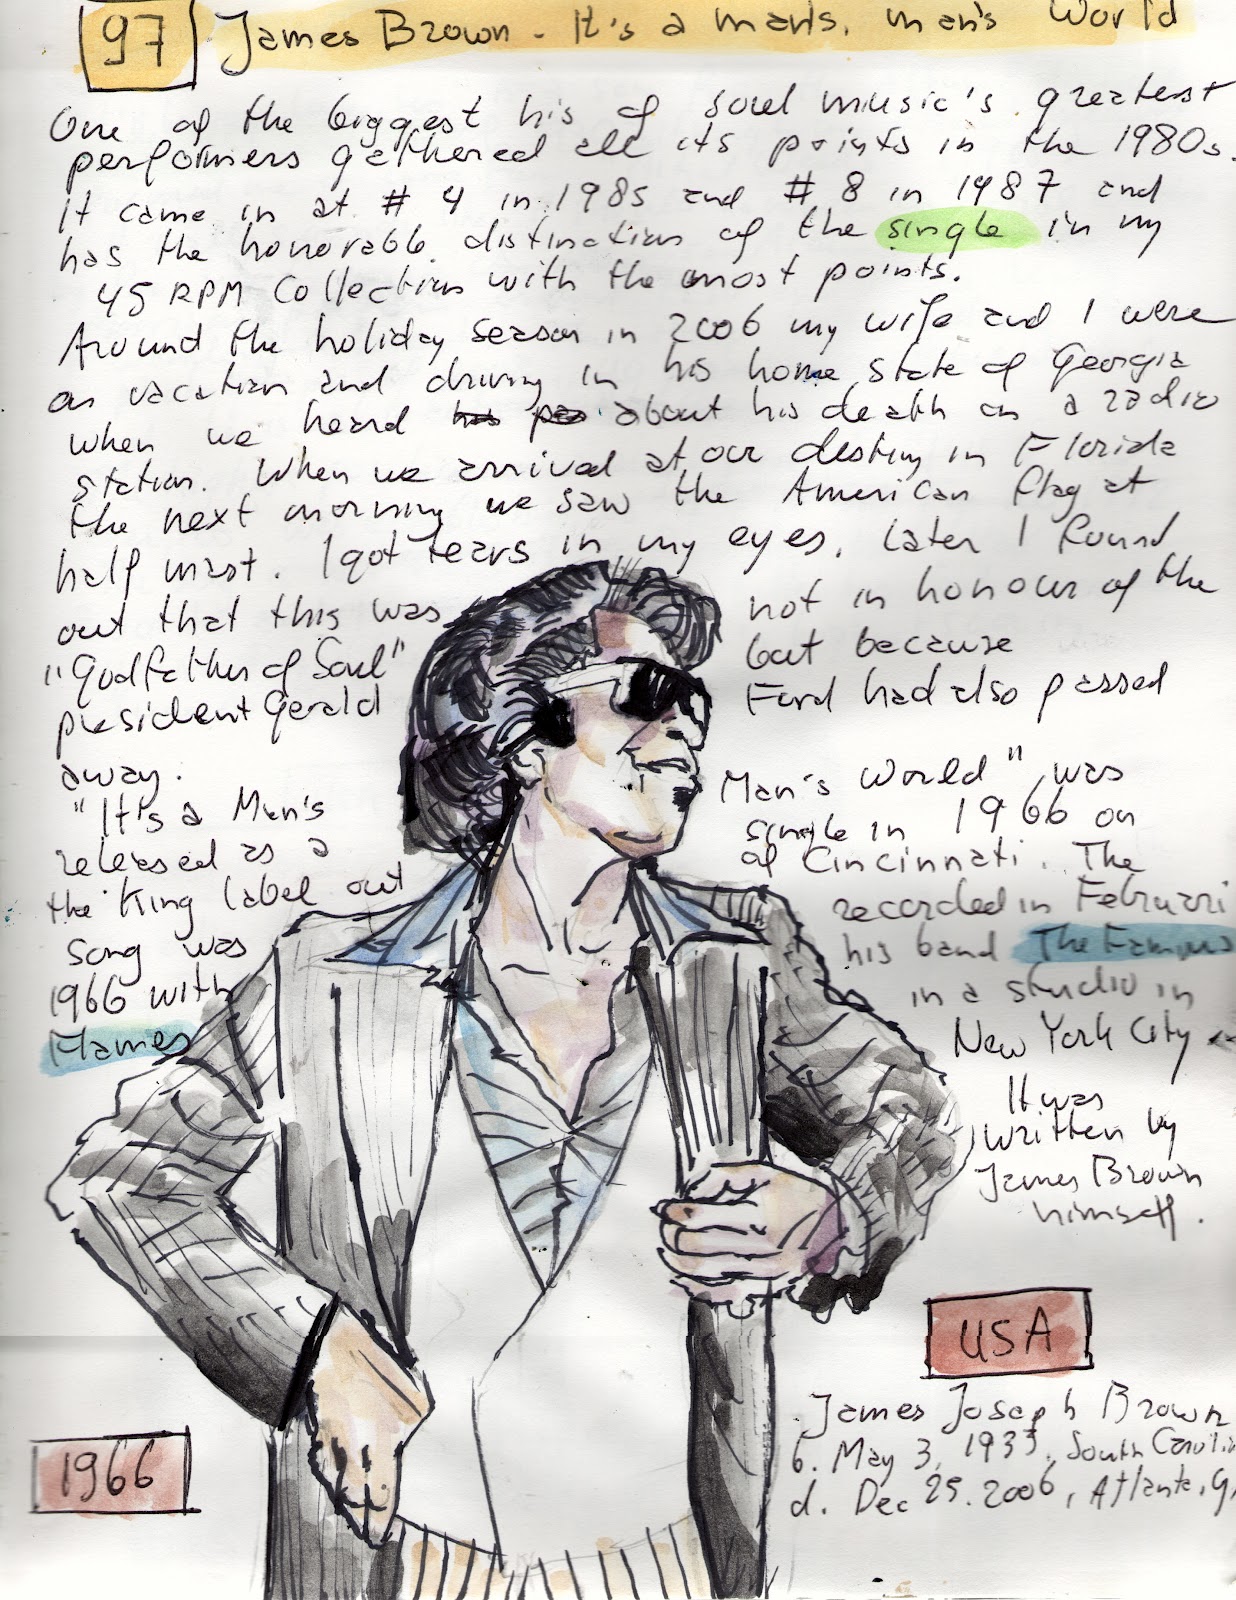 97 James Brown - It's a man's, man's World
One of the biggest his of soul music's greatest
performers gathered all its points in the 1980s.
It came in at # 4 in 1985 and # 8 in 1987 and
has the honorable distinction of the single in my
45 RPM Collection with the most points.
Around the holiday season in 2006 my wife and I were
on vacation and driving in his home state of Georgia
when we heard about his death on a radio
station. When we arrived at our destiny in Florida
the next morning we saw the American flag at
half mast. I got tears in my eyes. Later I found
out that this was not in honour of the
"Godfather of Soul" but because
president Gerald Ford had also passed
away.
"It's a Man's Man's World" was
released as a single in 1966 on
the King label out of Cincinnati. The
song was recorded in Februari
1966 with his band The Famous
Flames in a studio in
New York City.
It was
written by
James Brown
himself.
USA
James Joseph Brown
b. May 3, 1933, South Carolin
d. Dec 25. 2006, Atlanta, G
1966